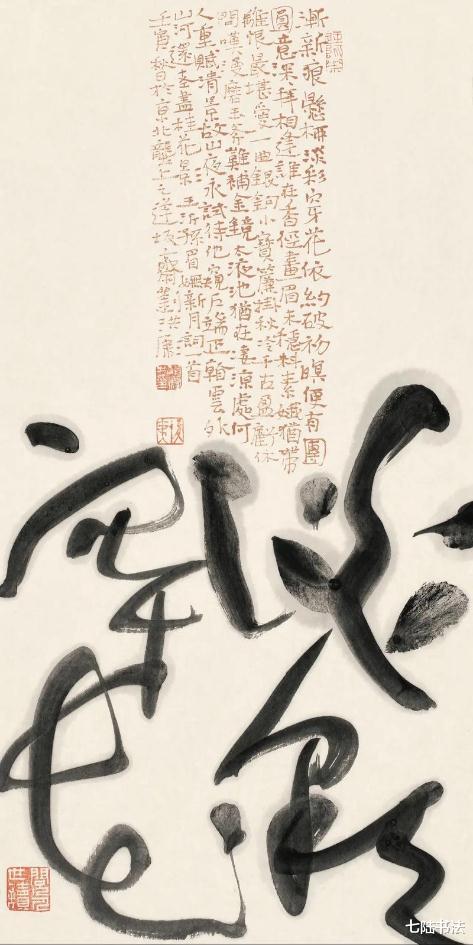 漸新痕懸柳淡彩穿花依約破初暝便有團
圓意深深拜相逢誰在香徑畫眉未穩料素娥猶帶
離恨最堪愛一曲銀鉤小寶簾掛秋冷千古盈虧休
問嘆曼磨玉斧難補金鏡太液池猶在淒涼處何
人重賦清景故山夜永試待他窺戶端正雲外
山河還老盡桂花景王沂孫眉嫵新月詞一首
壬寅秋日於京北劉洪彪
淡彩
穿花
七陆书法